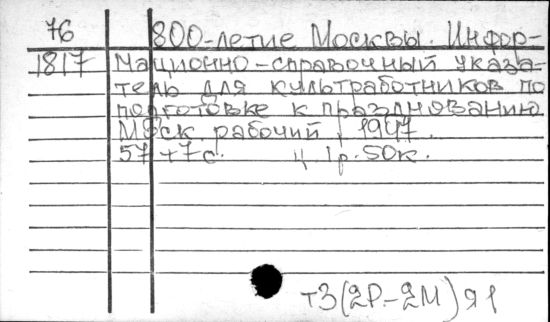 76 800-летие Москвы. Инфор-
1817 мационно-справочный указа-
тель для культработников по
подготовке к празднованию.
Моск. рабочий, 1947.
57+7с. ц. 1р.50к.
т3(2Р-2М)я1